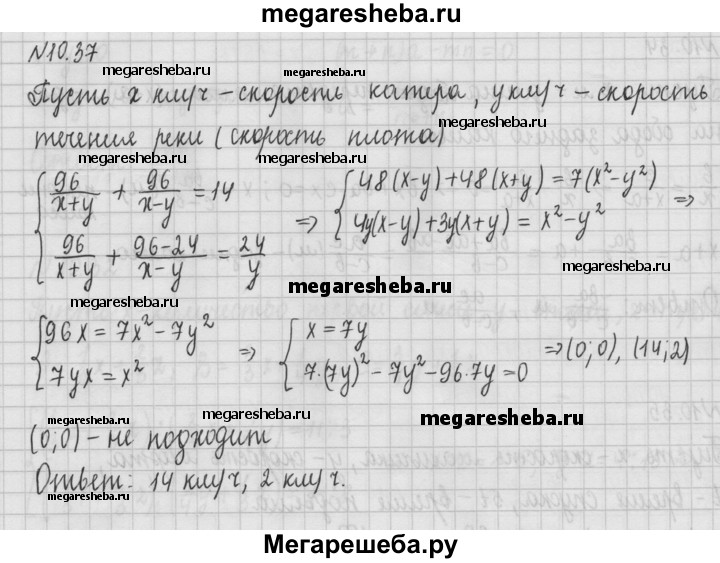 megaresheba.ru
N10.37
megaresheba.ru megaresheba.ru
Пусть x км/ч – скорость катера, y км/ч – скорость
течения реки (скорость плота)
megaresheba.ru megaresheba.ru megaresheba.ru
{ 96/(x+y) + 96/(x-y) = 14 ⇒ { 48(x-y)+48(x+y) = 7(x²-y²) ⇒
{ 96/(x+y) + (96-24)/(x-y) = 24/y { 4y(x-y)+3y(x+y) = x²-y²
megaresheba.ru
megaresheba.ru
megaresheba.ru
{ 96x = 7x²-7y² ⇒ { x = 7y ⇒ (0;0), (14;2)
{ 7yx = x² { 7·(7y)²-7y²-96·7y=0
megaresheba.ru megaresheba.ru
megaresheba.ru
(0;0) – не подходит
Ответ: 14 км/ч, 2 км/ч.
megaresheba.ru megaresheba.ru
megaresheba.ru
Мегарешеба.ру